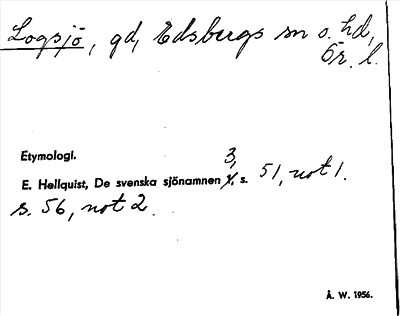 Logsjö, gd, Edsbergs sn o. hd,
Ör. l.
Etymologi.
E. Hellquist, De svenska sjönamnen 3, s. 51, not 1.
s. 56, not 2.
Å. W. 1956.